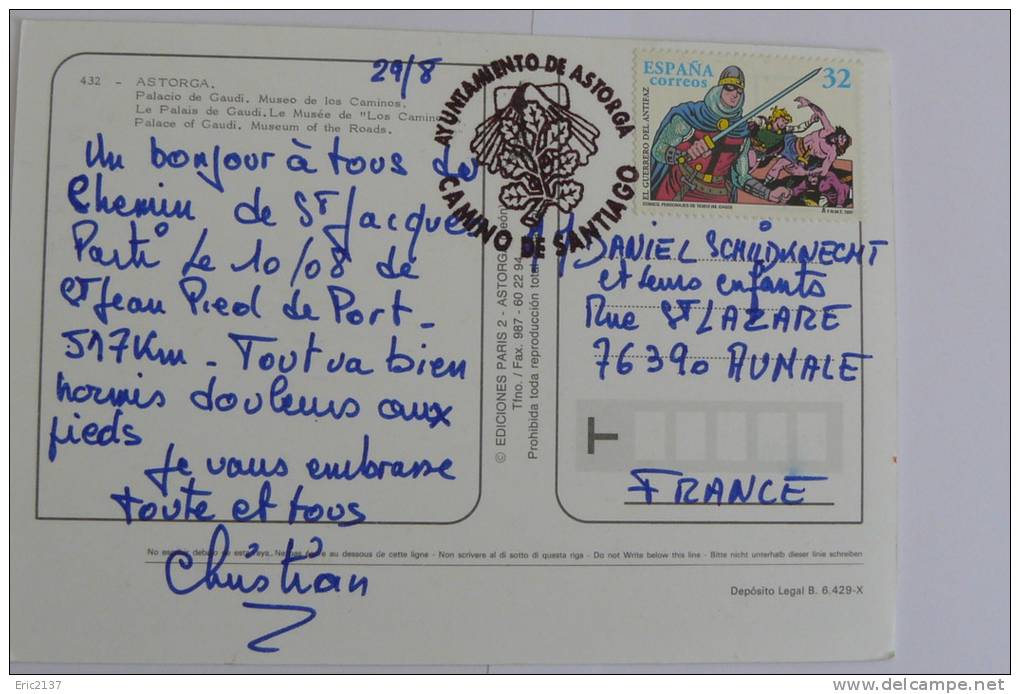 432 - ASTORGA.
Palacio de Gaudi. Museo de los Caminos.
Le Palais de Gaudi. Le Musée de "Los Camin
Palace of Gaudi. Museum of the Roads.
29/8
Un bonjour à tous du
Chemin de St Jacques
Parti le 10/08 de
St Jean Pied de Port -
517 Km - Tout va bien
hormis douleurs aux
pieds
Je vous embrasse
toute et tous
Christian
AYUNTAMIENTO DE ASTORGA
CAMINO DE SANTIAGO
ESPAÑA
correos
32
EL GUERRERO DEL ANTIFAZ
© EDICIONES PARIS 2 - ASTORGA
Tfno. / Fax. 987 - 60 22 94
Prohibida toda reproducción total
DANIEL SCHILDKNECHT
et leurs enfants
Rue St LAZARE
76390 AUMALE
T
FRANCE
No escribir debajo de esta raya. Ne pas écrire au dessous de cette ligne - Non scrivere al di sotto di questa riga - Do not Write below this line - Bitte nicht unterhalb dieser linie schreiben
Depósito Legal B. 6.429-X
Eric2137